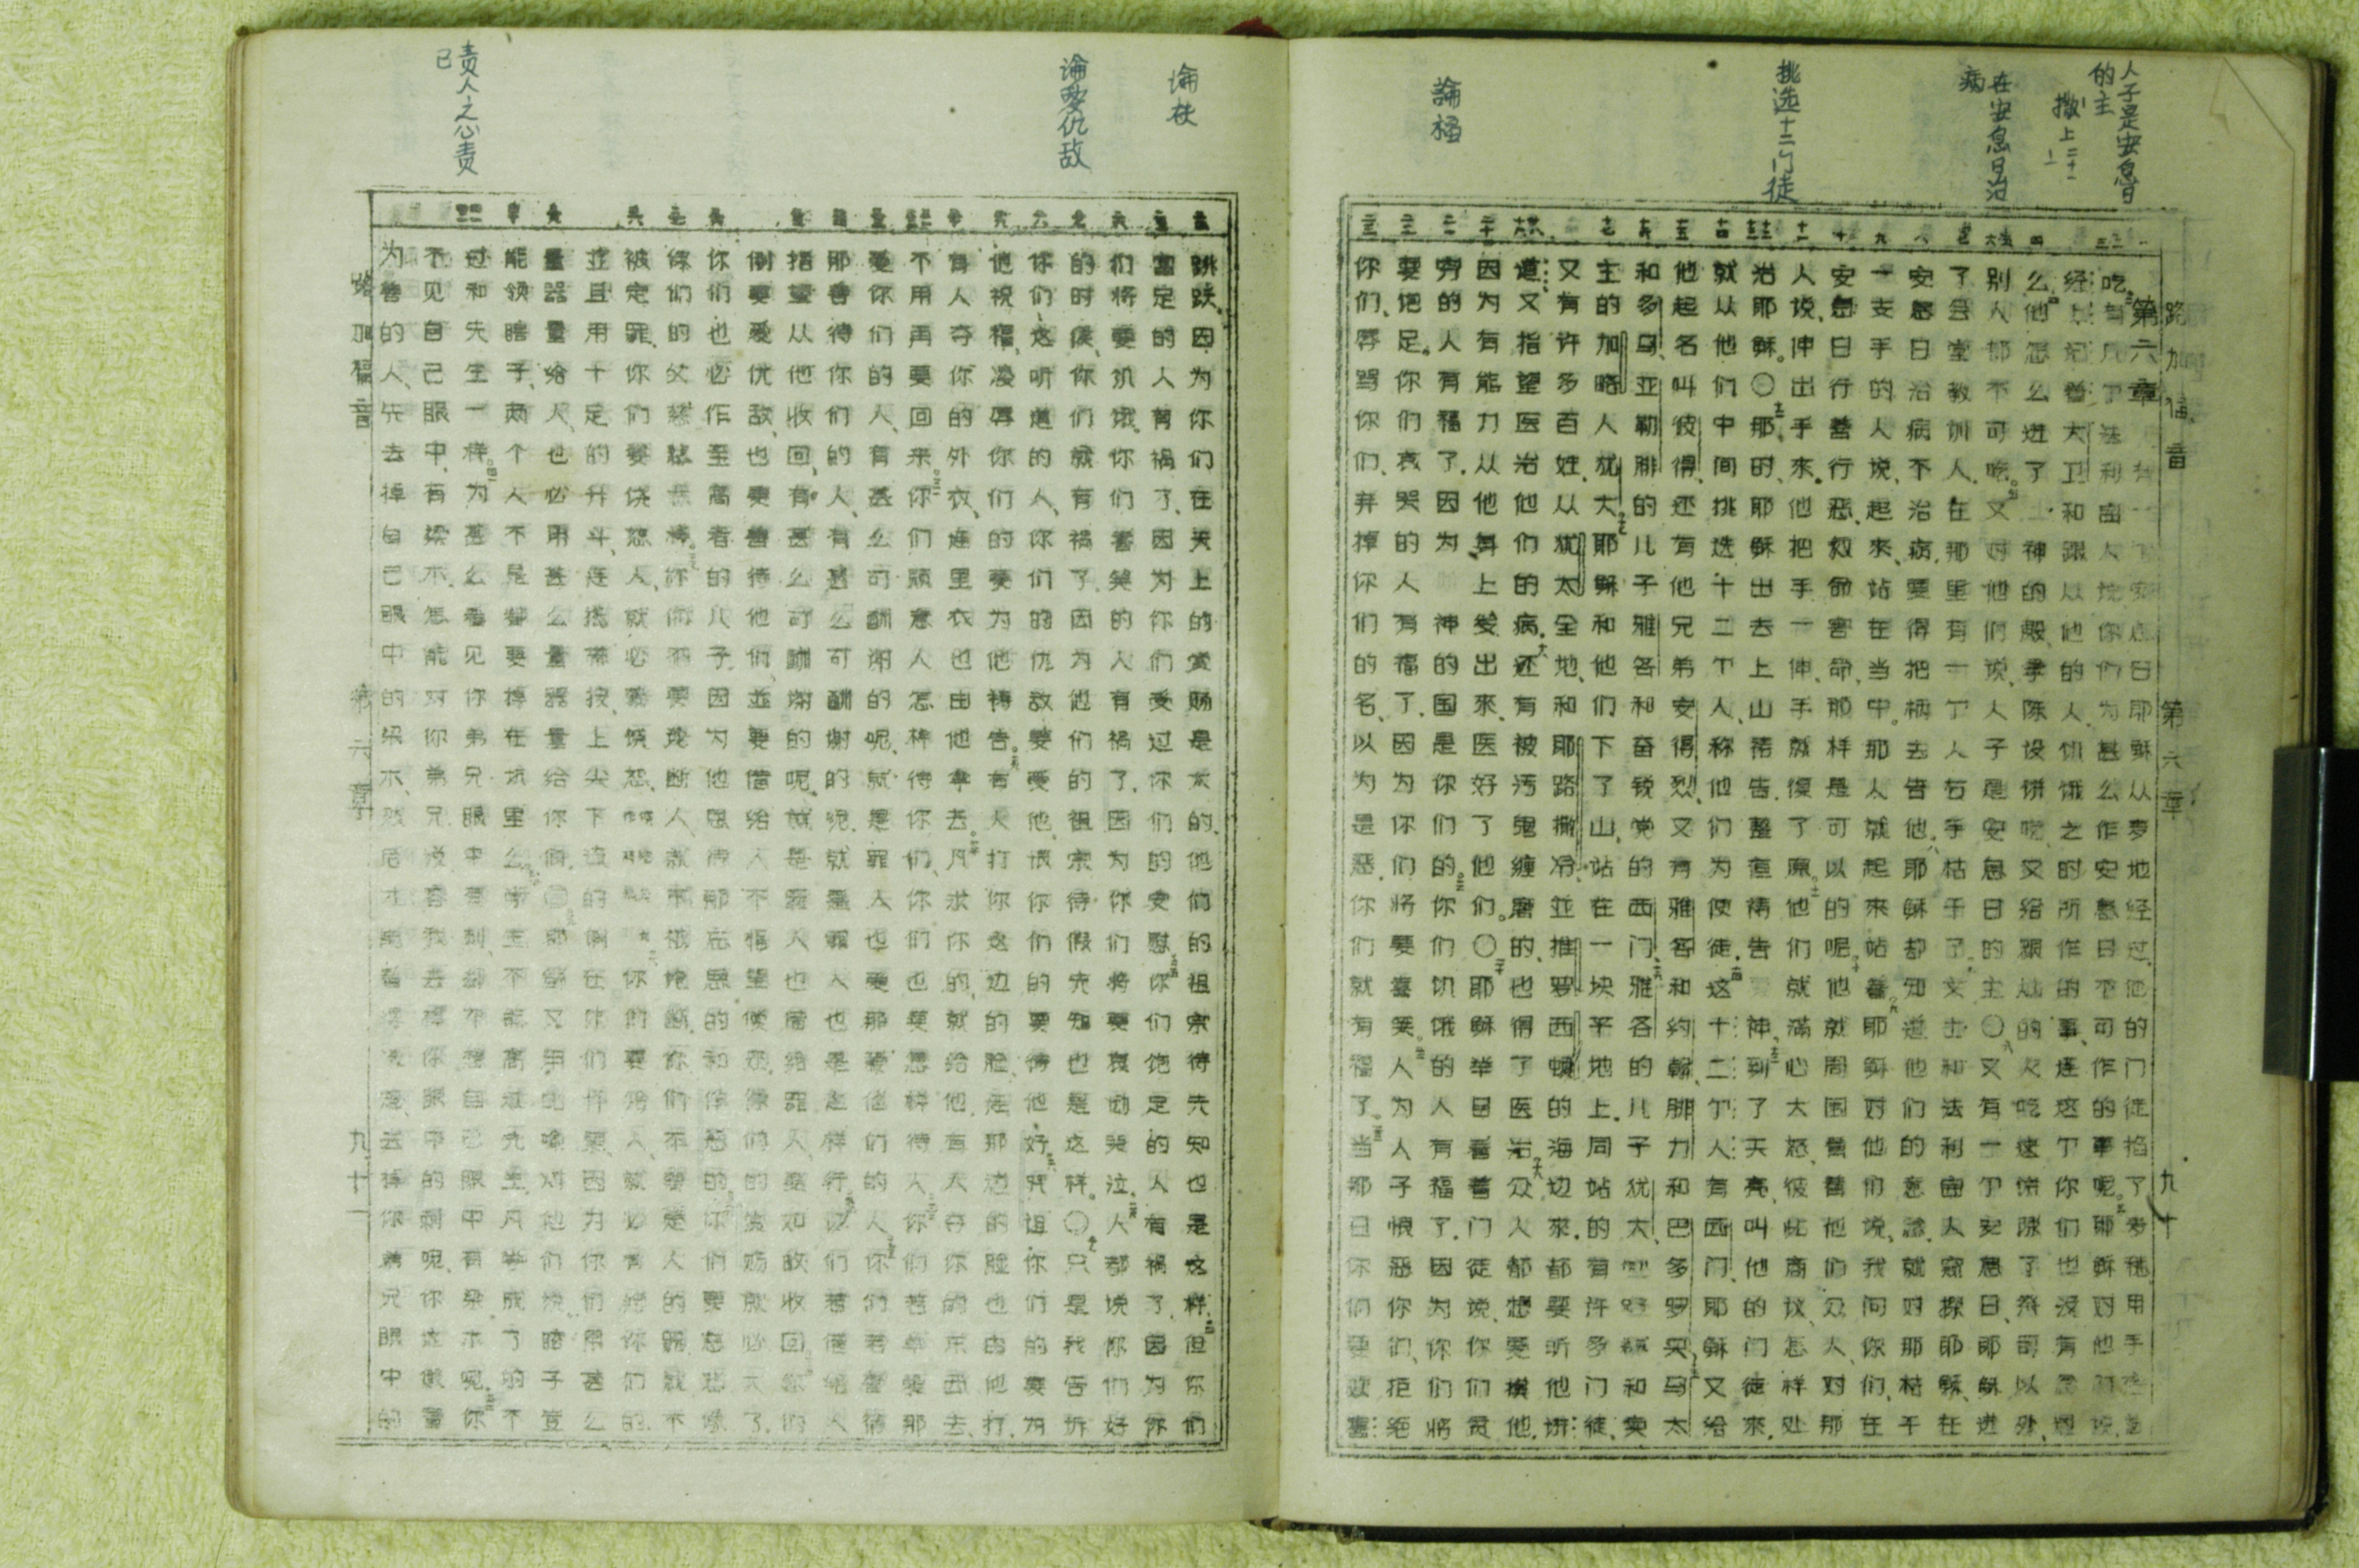 人子是安息日的主
撒上二十一
在安息日治病
挑选十二门徒
論福
路加福音
第六章
九十
第六章
有一个安息日耶稣从麦地经过.他的门徒掐了麦穗用手
吃.有几个法利人说你们为甚么作安息日不可作的事呢.耶稣对他
经上记着大卫和跟从他的人饥饿之时所作的事、连这个你们也没有
么.他怎么进了神的殿、拿陈设饼吃又给跟他的人吃.这饼除了祭司以外、
别人都不可吃.又对他们说、人子是安息日的主○又有一个安息日、耶稣进
了会堂教训人、在那里有一个人右手枯干了.文士和法利赛人窥探耶稣、在
安息日治病不治病、要得把柄去告他.耶稣却知道他们的意念、就对那枯干
一支手的人说、起来、站在当中.那人就起来站着.耶稣对他们说、我问你们、在
安息日行善行恶、救命害命、那样是可以的呢.他就周围看着他们众人、对那
人说、伸出手来.他把手一伸、手就復了原.他们就满心大怒、彼此商议怎样处
治耶稣。○那时、耶稣出去上山祷告.整夜祷告神.到了天亮叫他的门徒来.
就从他们中间挑选十二个人、称他们为使徒.这十二个人有西门耶稣又给
他起名叫彼得、还有他兄弟安得烈、又有雅各和约翰、腓力和巴多罗买马太
和多马、亚勒腓的儿子雅各和奋锐党的西门、雅各的儿子犹大和卖
主的加略人犹大.耶稣和他们下了山、站在一块平地上.同站的有许多门徒、
又有许多百姓、从犹太全地、和耶路撒冷、並推罗西顿的海边来.都要听他讲
道.又指望医治他们的病.还有被污鬼缠磨的、也得了医治.众人都想要摸他.
因为有能力从他身上发出来、医好了他们。○耶稣举目看着门徒说、你们贫
穷的人有福了.因为神的国是你们的.你们饥饿的人有福了.因为你们将
要饱足.你们哀哭的人有福了.因为你们将要喜笑.人为人子恨恶你们、拒绝
你们、辱骂你们、弃掉你们的名、以为是恶、你们就有福了.当那日你们要欢喜
論爱仇敌
责人之心责己
路加福音
第六章
九十一
跳跃.因为你们在天上的赏赐是大的.他们的祖宗待先知也是这样.但你们
富足的人有祸了.因为你们受过你们的安慰.你们饱足的人有祸了.因为你
们将要饥饿.你们喜笑的人有祸了.因为你们将要哀恸哭泣.人都说你们好
的时候、你们就有祸了.因为他们的祖宗待假先知也是这样。○只是我告诉
你们这听道的人、你们的仇敌要爱他、恨你们的要待他好.咒诅你们的要为
他祝福、凌辱你们的要为他祷告.有人打你这边的脸、连那边的脸也由他打.
有人夺你的外衣、连里衣也由他拿去.凡求你的、就给他.有人夺你的东西去、
不用再要回来.你们愿意人怎样待你们、你们也要怎样待人.你们若单爱那
爱你们的人、有甚么可酬谢的呢、就是罪人也爱那爱他们的人.你们若善待那
善待你们的人、有甚么可酬谢的呢、就是罪人也是这样行.你们若借给人
指望从他收回、有甚么可酬谢的呢、就是罪人也借给罪人、要如数收回
倒要爱仇敌、也要善待他们、並要借给人不指望偿还.你们的赏赐就必大了.
你们也必作至高者的儿子.因为他恩待那忘恩的和作恶的.你们要慈悲
像你们的父慈悲
被定罪、你们要饶恕人、就必蒙饶恕
並且用十足的升斗、连摇带按、上尖下流的倒在你们怀里、因为你们
量器量给人、也必用甚么量器量给你们。○耶稣又用比喻对他们说、瞎子
能领瞎子、两个人不是都要掉在坑里么.学生不能高过先生.凡学成了的不
过和先生一样.为甚么看见你弟兄眼中有刺、却不想自己眼中有梁木呢.你
不见自己眼中有梁木.怎能对你弟兄说容我去掉你眼中的刺呢.你这
善的人、先去掉自己眼中的梁木、然后才能看得清楚去掉你弟兄眼中的